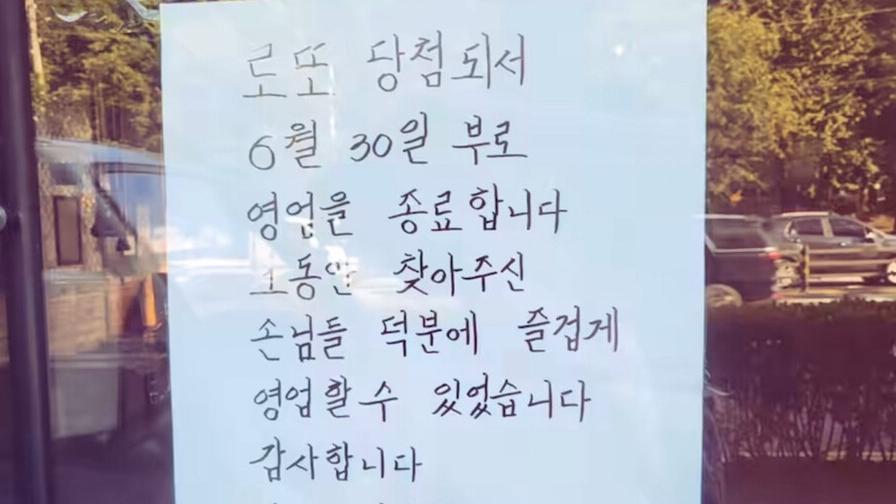 로또 당첨되서
6월 30일 부로
영업을 종료합니다
그동안 찾아주신
손님들 덕분에 즐겁게
영업할수 있었습니다
감사합니다